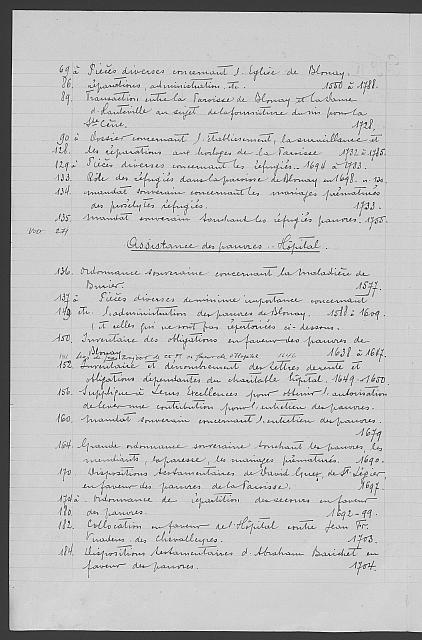 69 à Pièces diverses concernant l'Eglise de Blonay.
86. réparations, administration, etc. 1550 à 1788.
89. Transaction entre la Paroisse de Blonay et la Dame
d'Hauteville au sujet de la fourniture du vin pour la
Ste Cène. 1728.
90 à Dossier concernant l'établissement, la surveillance et
128. les réparations aux horloges de la Paroisse 1732 à 1785.
129 à Pièces diverses concernant les réfugiés. 1698 à 1733.
133. Rôle des réfugiés dans la paroisse de Blonay en 1698
134. Mandat souverain concernant les mariages prématurés
des prosélytes réfugiés. 1733.
135. Mandat souverain touchant les réfugiés pauvres. 1755.
Voir 271
Assistance des pauvres. Hôpital.
136. Ordonnance souveraine concernant la maladière de
Burier. 1577.
137 à Pièces diverses de minime importance concernant
149 etc. l'administration des pauvres de Blonay. 1518 à 1609.
(et celles qui ne sont pas répertoriées ci-dessous.
150. Inventaire des obligations en faveur des pauvres de
Blonay. 1638 à 1667.
151 en faveur de l'Hôpital 1646
152. Inventaire et dénombrement des lettres de rente et
obligations dépendantes du charitable hôpital. 1649-1650
156. Supplique à Leurs Excellences pour obtenir l'autorisation
de lever une contribution pour l'entretien des pauvres.
160. Mandat souverain concernant l'entretien des pauvres.
1679
164. Grande ordonnance souveraine touchant les pauvres, les
mendiants, la paresse, les mariages prématurés. 1690.
170. Dispositions testamentaires de David Guex, de St Légier,
en faveur des pauvres de la Paroisse. 1697.
174 à Ordonnance de répartition des secours en faveur
180. des pauvres. 1692-99.
182. Collocation en faveur de l'Hôpital contre Jean Fr.
Vuadens des Chevalleyres. 1703.
184. Dispositions testamentaires d'Abraham Barichet en
faveur des pauvres. 1704.